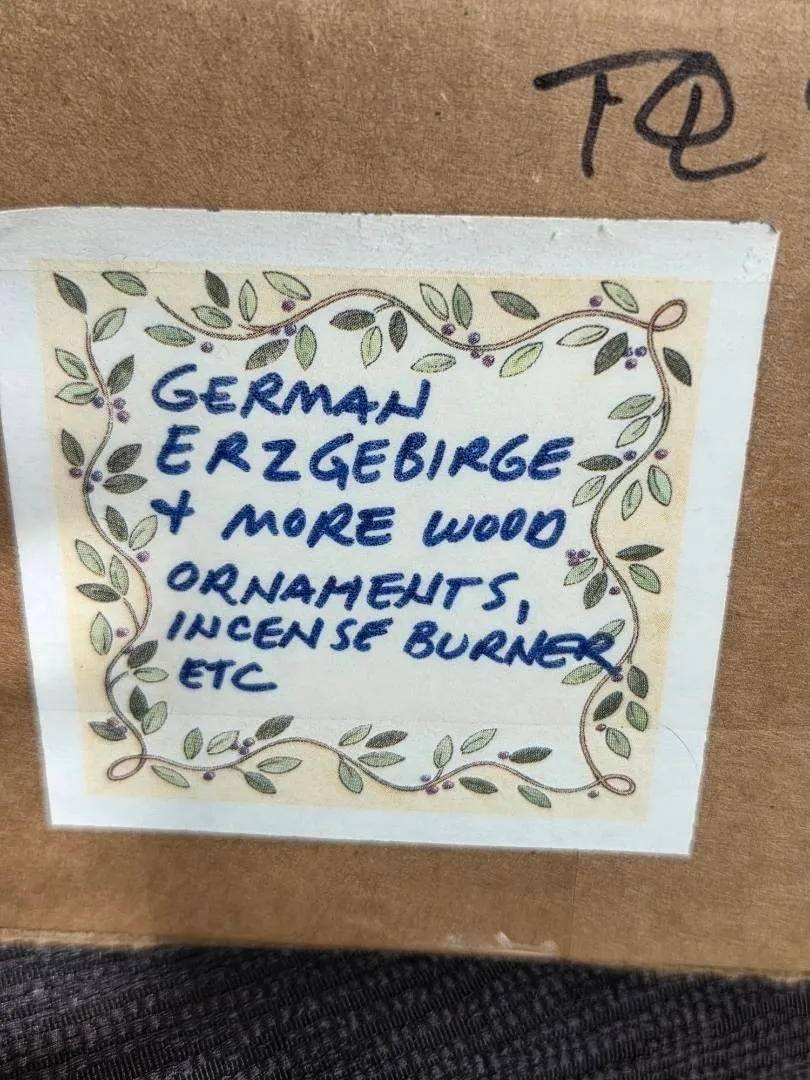 GERMAN
ERZGEBIRGE
+ MORE WOOD
ORNAMENTS,
INCENSE BURNER
ETC